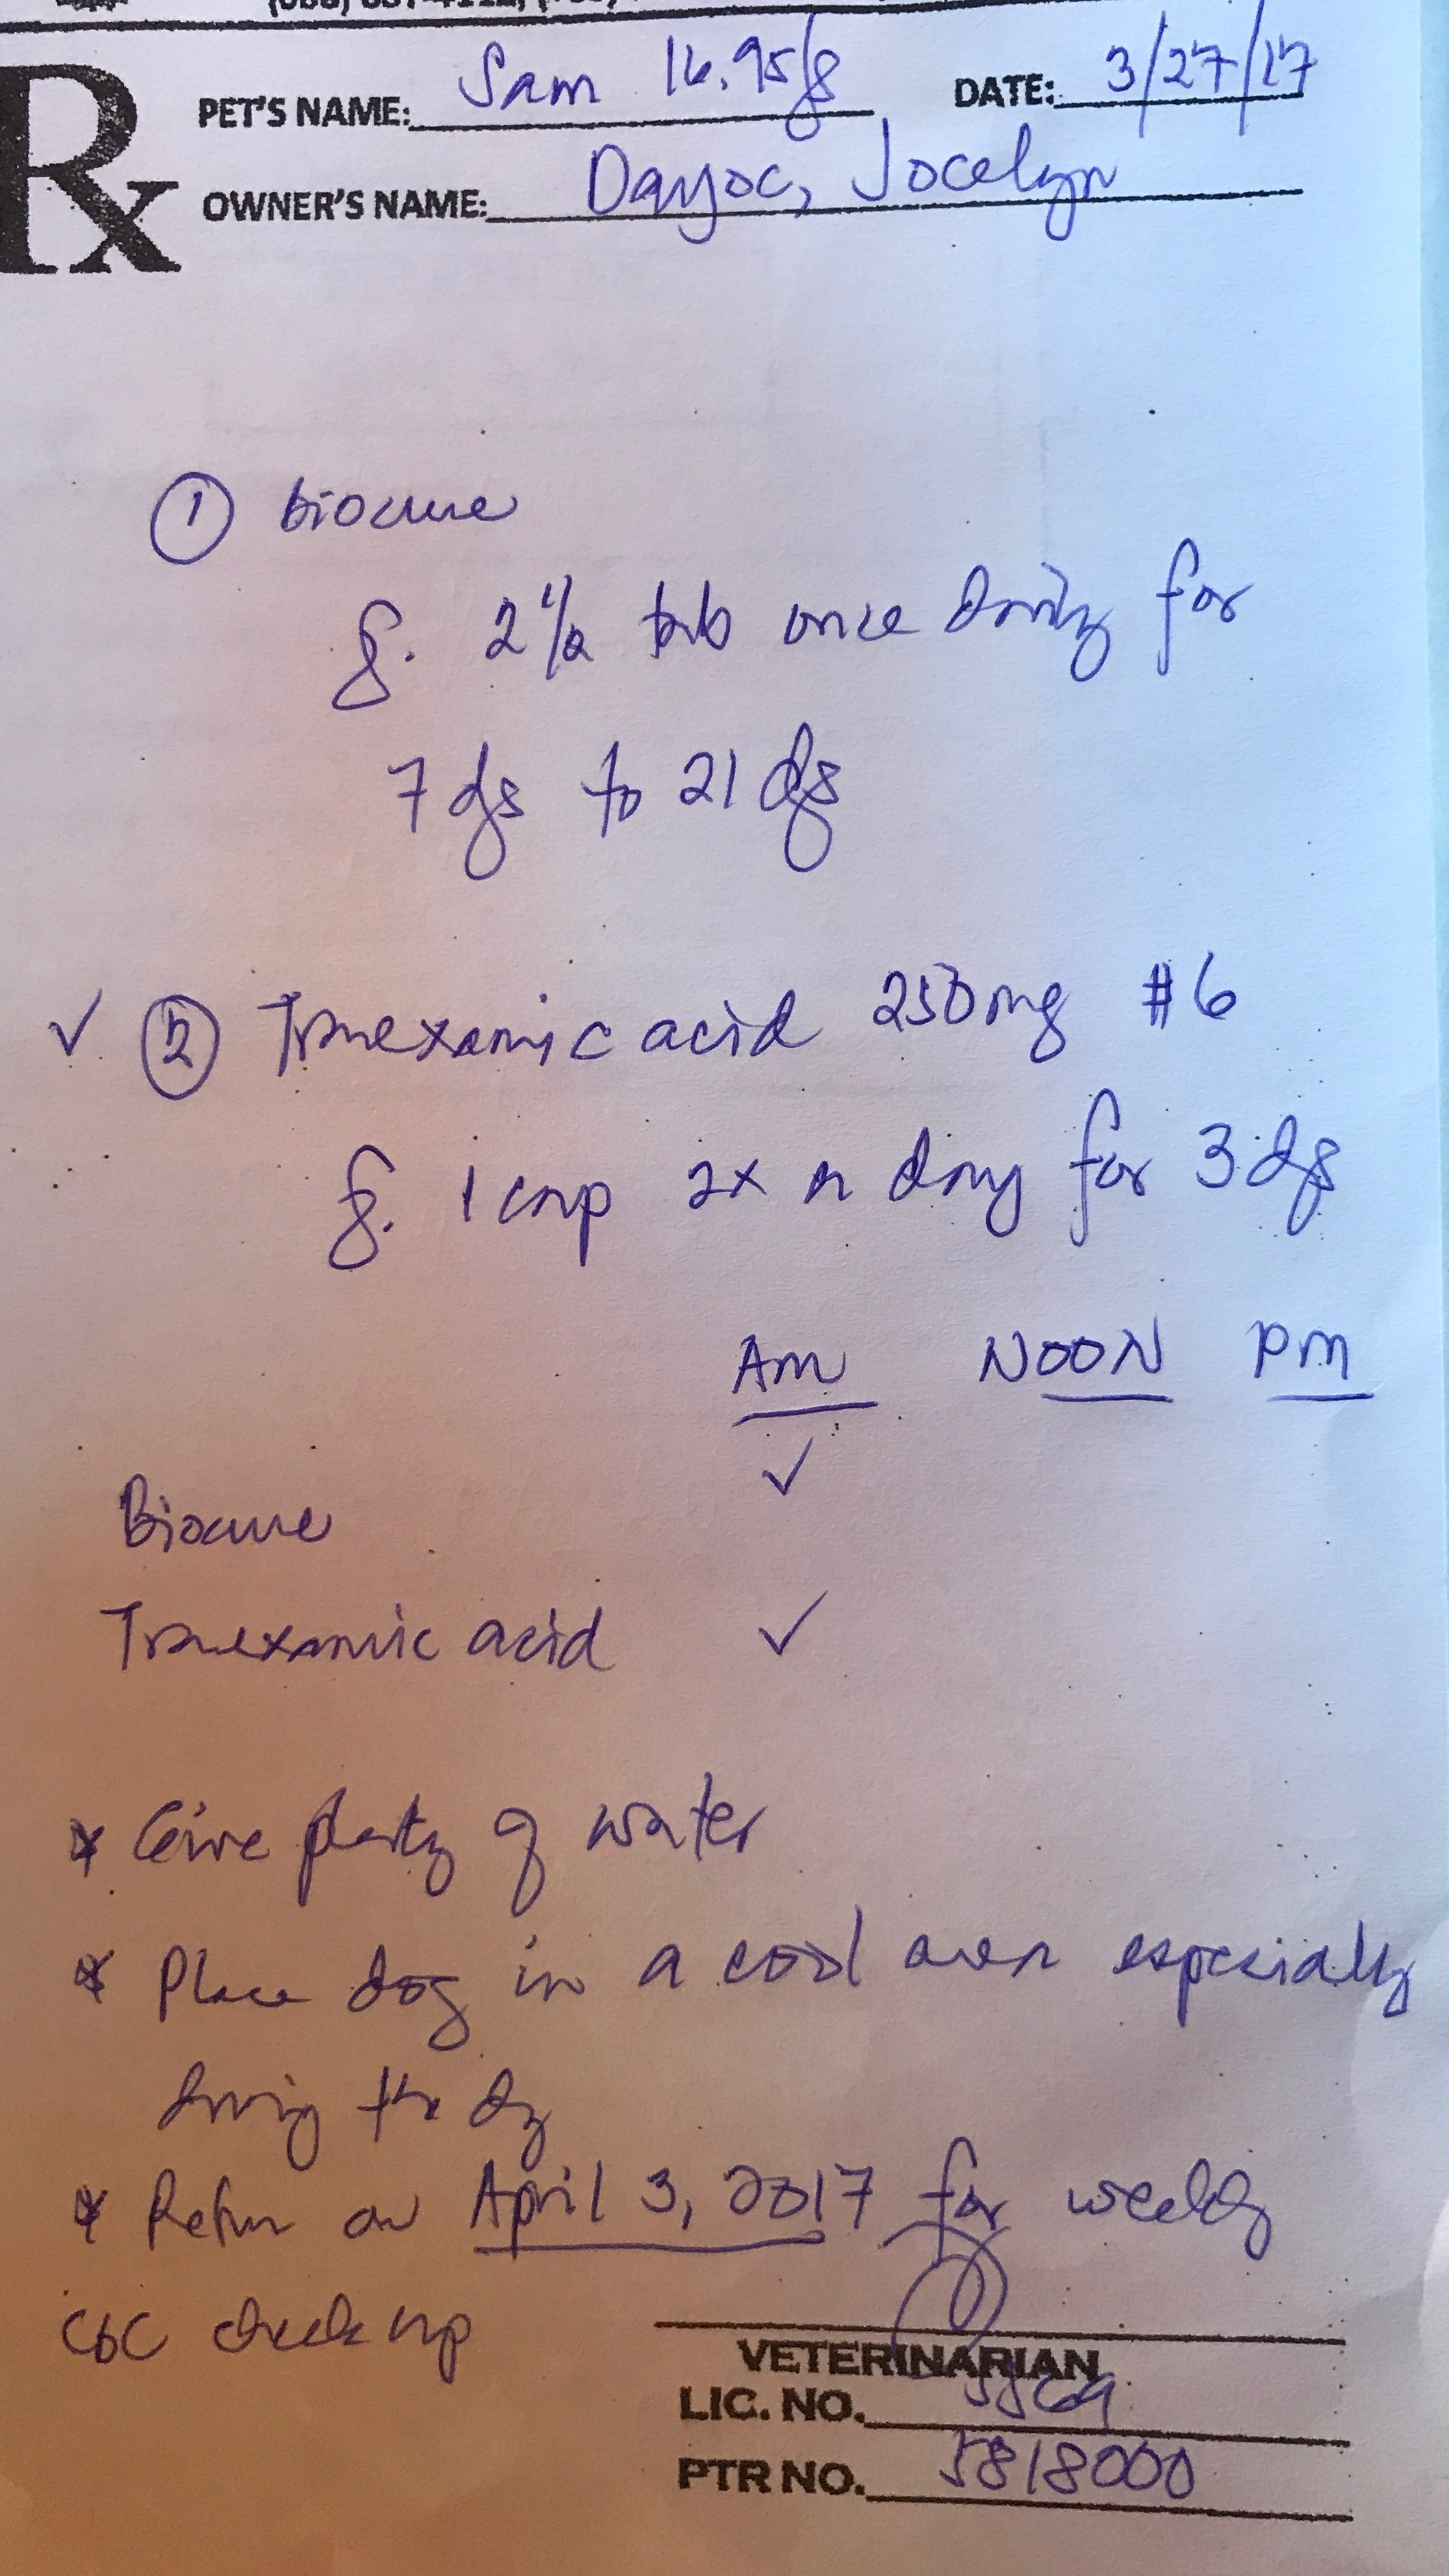 Rx
PET'S NAME: Sam 16.95kg DATE: 3/27/17
OWNER'S NAME: Dayoc, Jocelyn
① biocure
2 1/2 tab once daily for
7 dys to 21 dys
✓ ② Tranexamic acid 250mg #6
1 cap 2x a day for 3 dys
Am NOON Pm
Biocure ✓
Tranexamic acid ✓
* Give plenty of water
* Place dog in a cool area especially
during the dy
* Return on April 3, 2017 for weekly
CBC check up
VETERINARIAN
LIC. NO.
PTR NO. 5818000